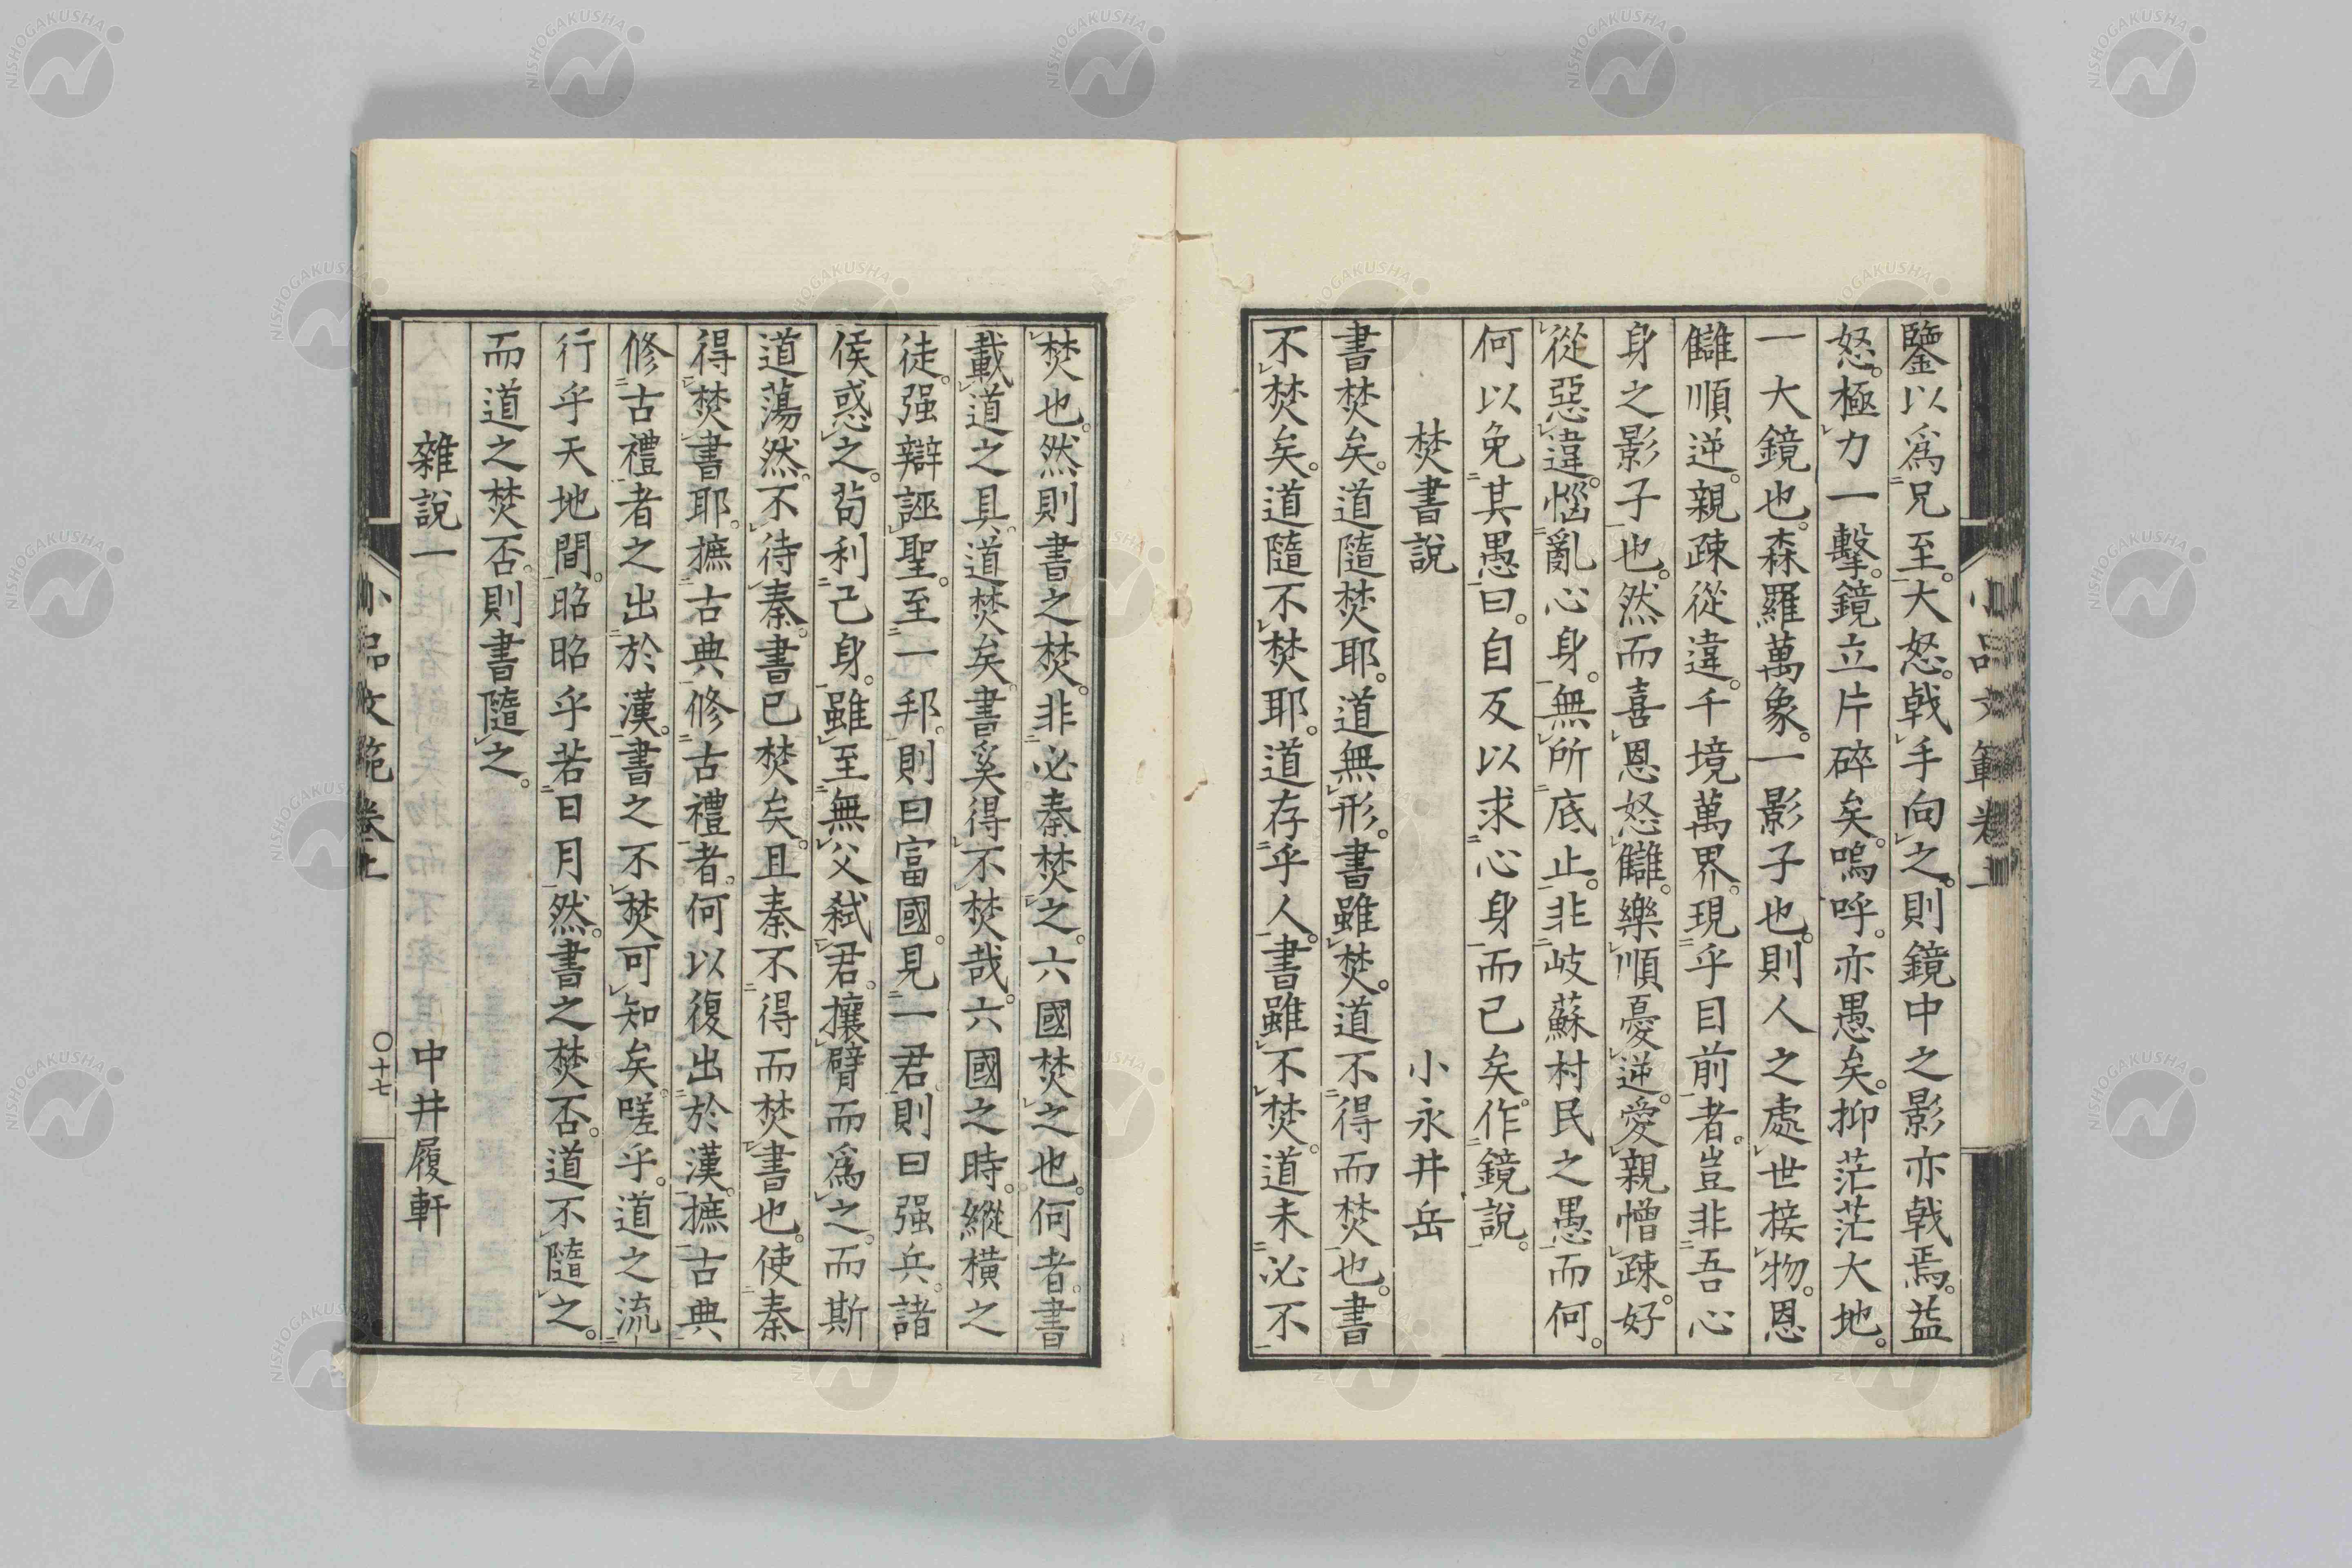 鑒以爲兄至。大怒。戟手向之。則鏡中之影亦戟焉。益
怒。極力一擊。鏡立片碎矣。嗚呼。亦愚矣。抑茫茫大地。
一大鏡也。森羅萬象。一影子也。則人之處世接物。恩
讎順逆。親疎從違。千境萬界。現乎目前者。豈非吾心
身之影子也。然而喜恩怒讎。樂順憂逆。愛親憎疎。好
從惡違。惱亂心身。無所底止。非岐蘇村民之愚而何。
何以免其愚。曰。自反以求心身而已矣。作鏡說。
焚書說　小永井岳
書焚矣。道隨焚耶。道無形。書雖焚。道不得而焚也。書
不焚矣。道隨不焚耶。道存乎人。書雖不焚。道未必不
焚也。然則書之焚。非必秦焚之。六國焚之也。何者。書
載道之具。道焚矣。書奚得不焚哉。六國之時。縱橫之
徒。强辯誣聖。至一邦。則曰富國。見一君。則曰强兵。諸
侯惑之。苟利己身。雖至無父弑君。攘臂而爲之。而斯
道蕩然。不待秦。書已焚矣。且秦不得而焚書也。使秦
得焚書耶。摭古典修古禮者。何以復出於漢。摭古典
修古禮者之出於漢。書之不焚可知矣。嗟乎。道之流
行乎天地間。昭昭乎若日月然。書之焚否。道不隨之。
而道之焚否。則書隨之。
雜說一　中井履軒
小品文範卷上
〇十七
NISHOGAKUSHA